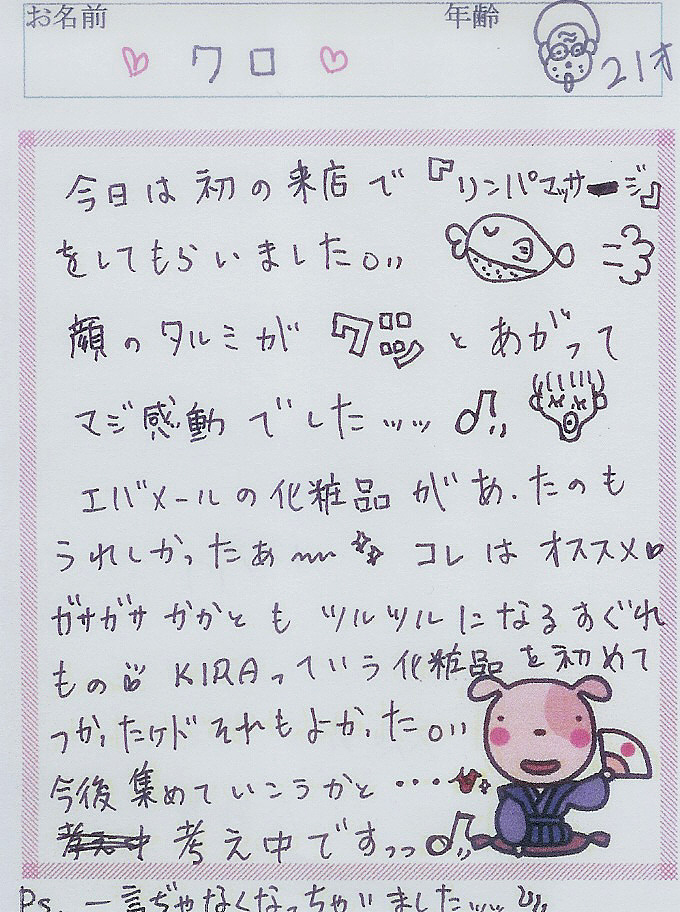 お名前 年齢
♡ クロ ♡ 21才
今日は初の来店で『リンパマッサージ』
をしてもらいました。
顔のタルミが グッ とあがって
マジ感動でしたッッ ♫
エバメールの化粧品があったのも
うれしかったぁ〜 コレはオススメ♡
ガサガサかかとも ツルツルになるすぐれ
もの KIRAっていう化粧品を初めて
つかったけドそれもよかった。
今後集めていこうかと・・・
考え中ですっっ♫
Ps. 一言ぢゃなくなっちゃいましたッッ